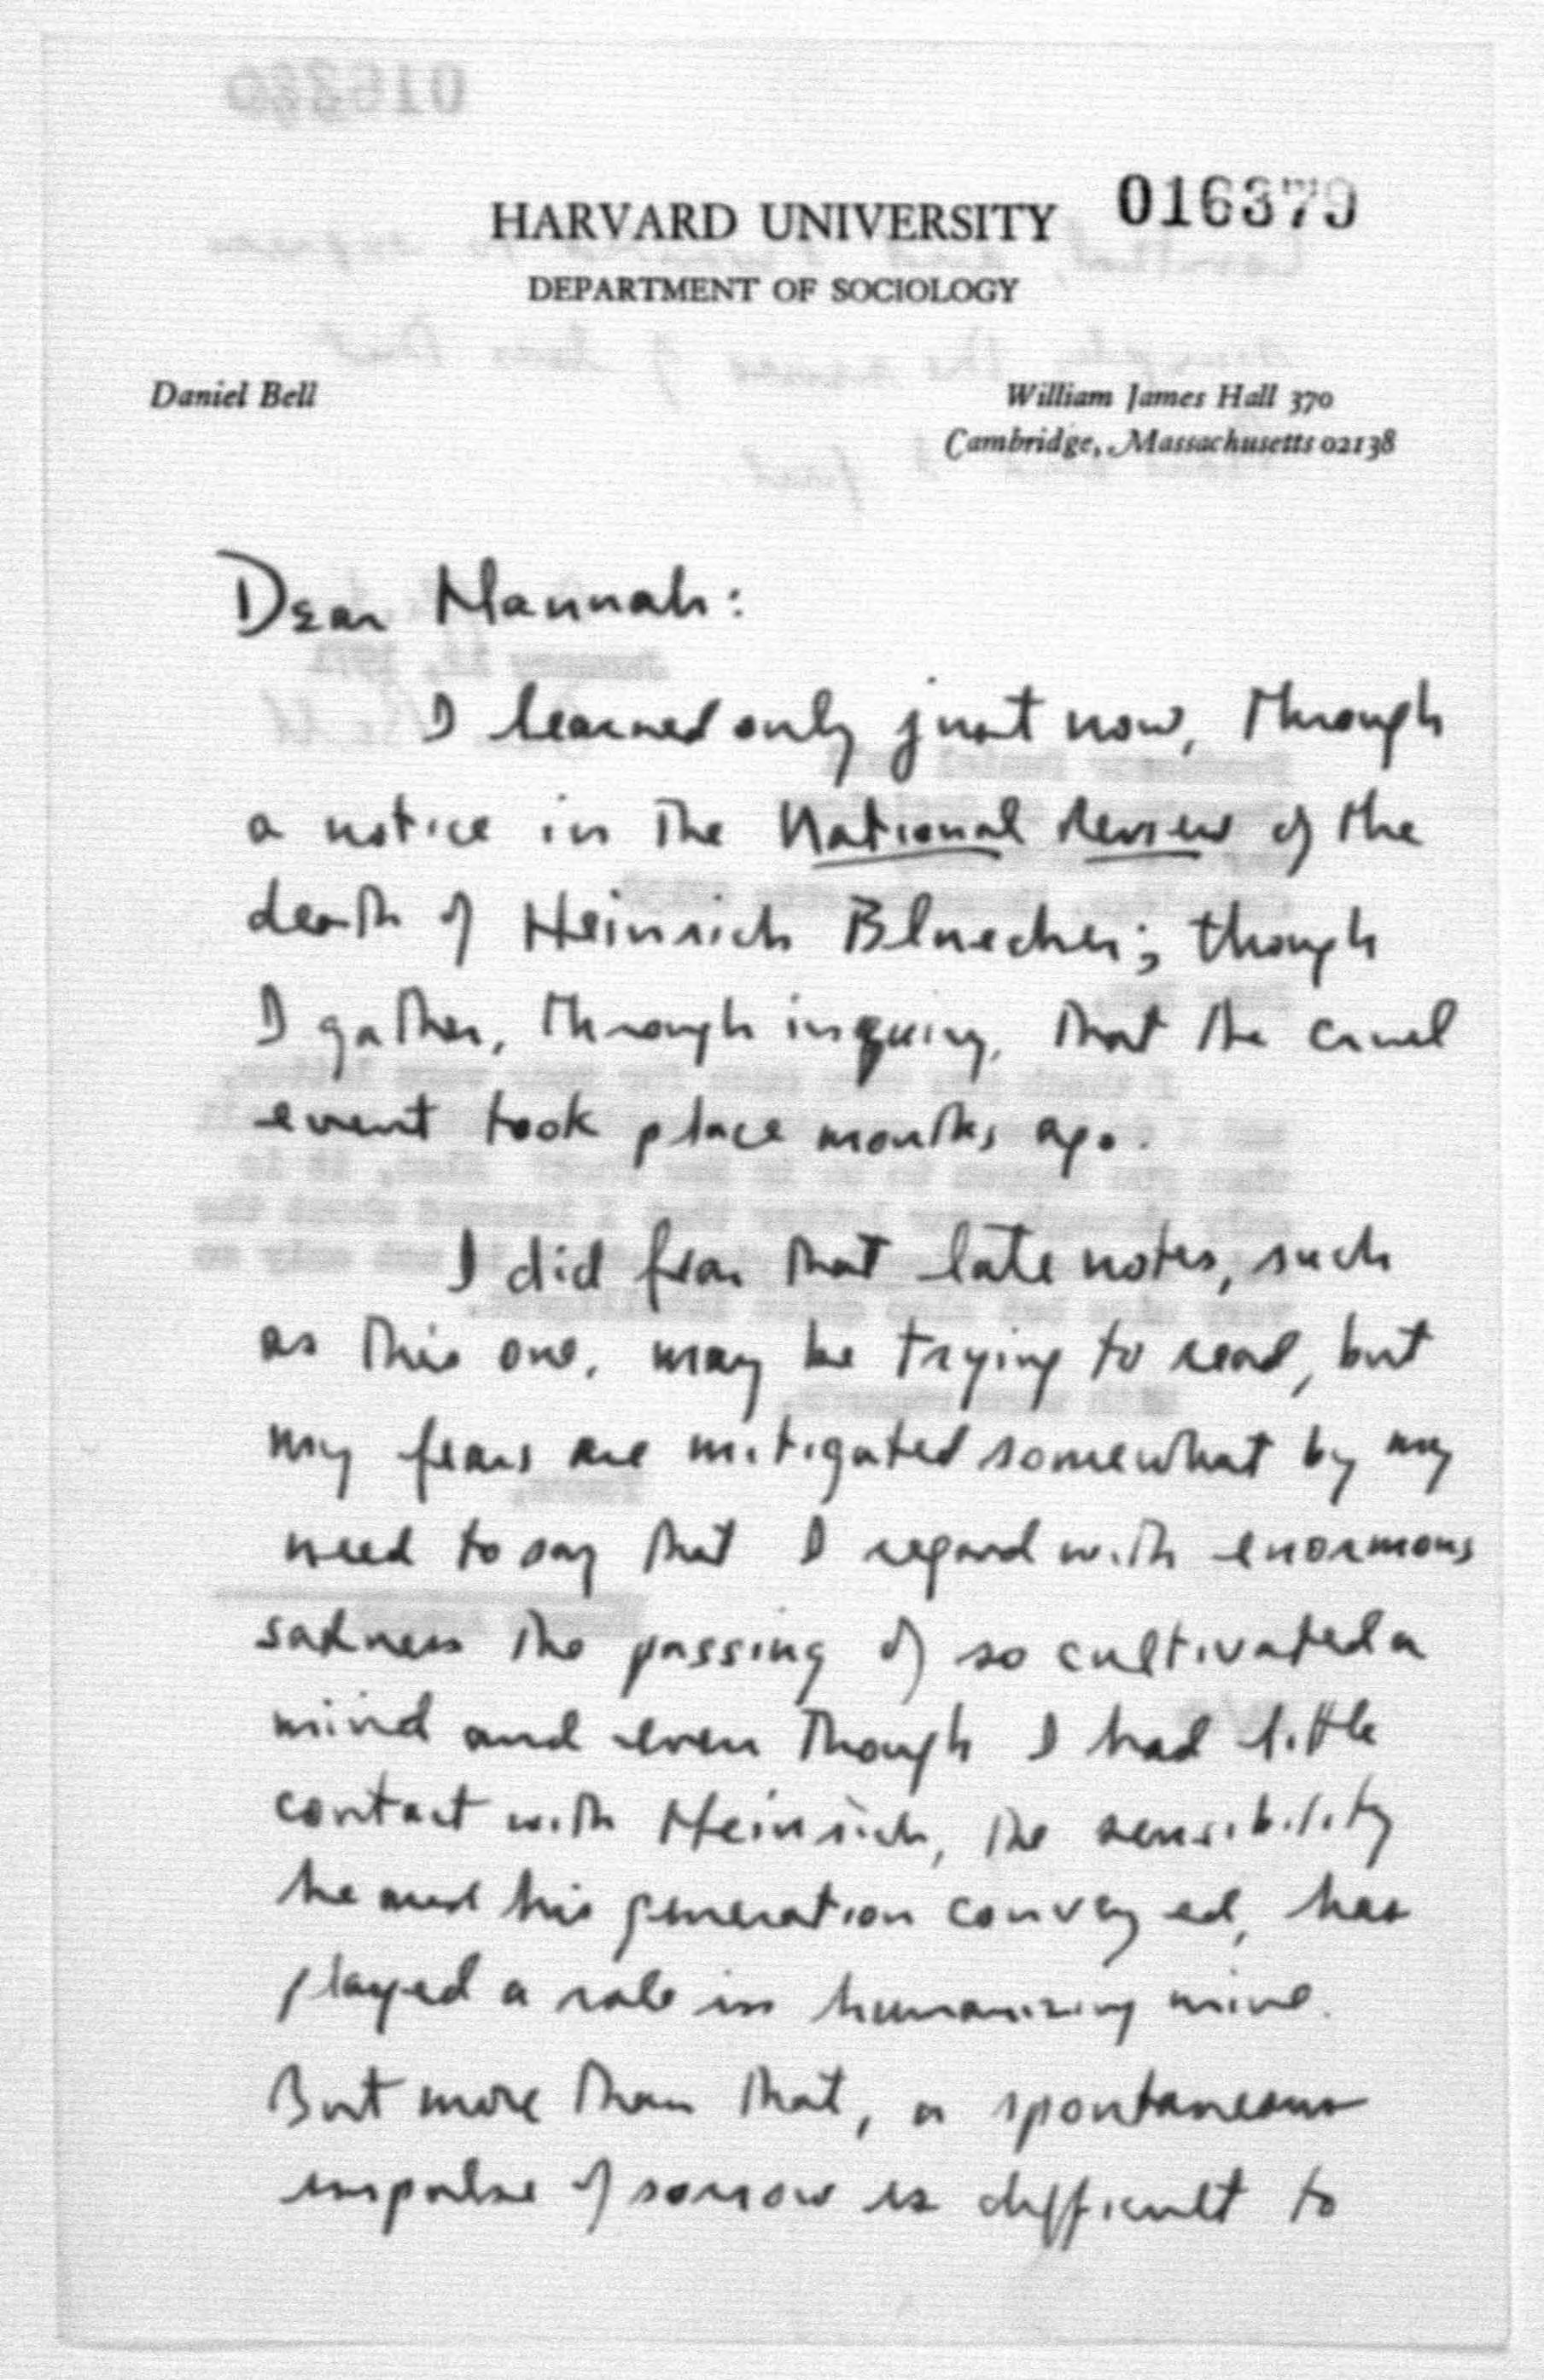 016379
HARVARD UNIVERSITY
DEPARTMENT OF SOCIOLOGY
Daniel Bell
William James Hall 370
Cambridge, Massachusetts 02138
Dear Hannah:
I learned only just now, through
a notice in the National Review of the
death of Heinrich Bluecher; though
I gather, through inquiry, that the cruel
event took place months ago.
I did fear that late notes, such
as this one, may be trying to read, but
my fears are mitigated somewhat by my
need to say that I regard with enormous
sadness the passing of so cultivated a
mind and even though I had little
contact with Heinrich, the sensibility
he and his generation conveyed, has
played a role in humanizing mine.
But more than that, a spontaneous
impulse of sorrow is difficult to